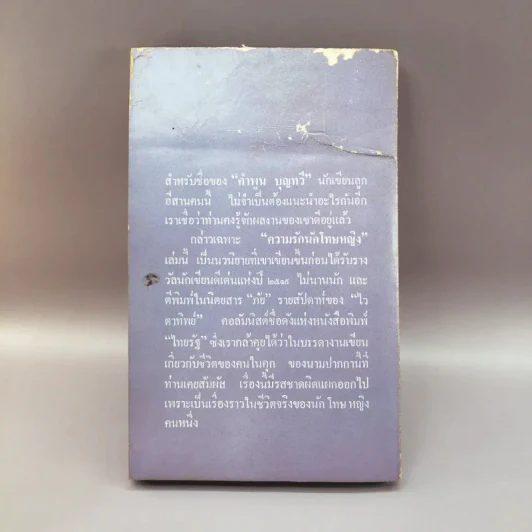 สำหรับชื่อของ "คำพูน บุญทวี" นักเขียนลูก
อีสานคนนี้ ไม่จำเป็นต้องแนะนำอะไรกันอีก
เราเชื่อว่าท่านคงรู้จักผลงานของเขาดีอยู่แล้ว
กล่าวเฉพาะ "ความรักนักโทษหญิง"
เล่มนี้ เป็นนวนิยายที่เขาเขียนขึ้นก่อนได้รับราง
วัลนักเขียนดีเด่นแห่งปี ๒๕๑๙ ไม่นานนัก และ
ตีพิมพ์ในนิตยสาร "ภัย" รายสัปดาห์ของ "ไว
ตาทิพย์" คอลัมนิสต์ชื่อดังแห่งหนังสือพิมพ์
"ไทยรัฐ" ซึ่งเรากล้าคุยได้ว่าในบรรดางานเขียน
เกี่ยวกับชีวิตของคนในคุก ของนามปากกานี้ที่
ท่านเคยสัมผัส เรื่องนี้มีรสชาดผิดแผกออกไป
เพราะเป็นเรื่องราวในชีวิตจริงของนักโทษหญิง
คนหนึ่ง